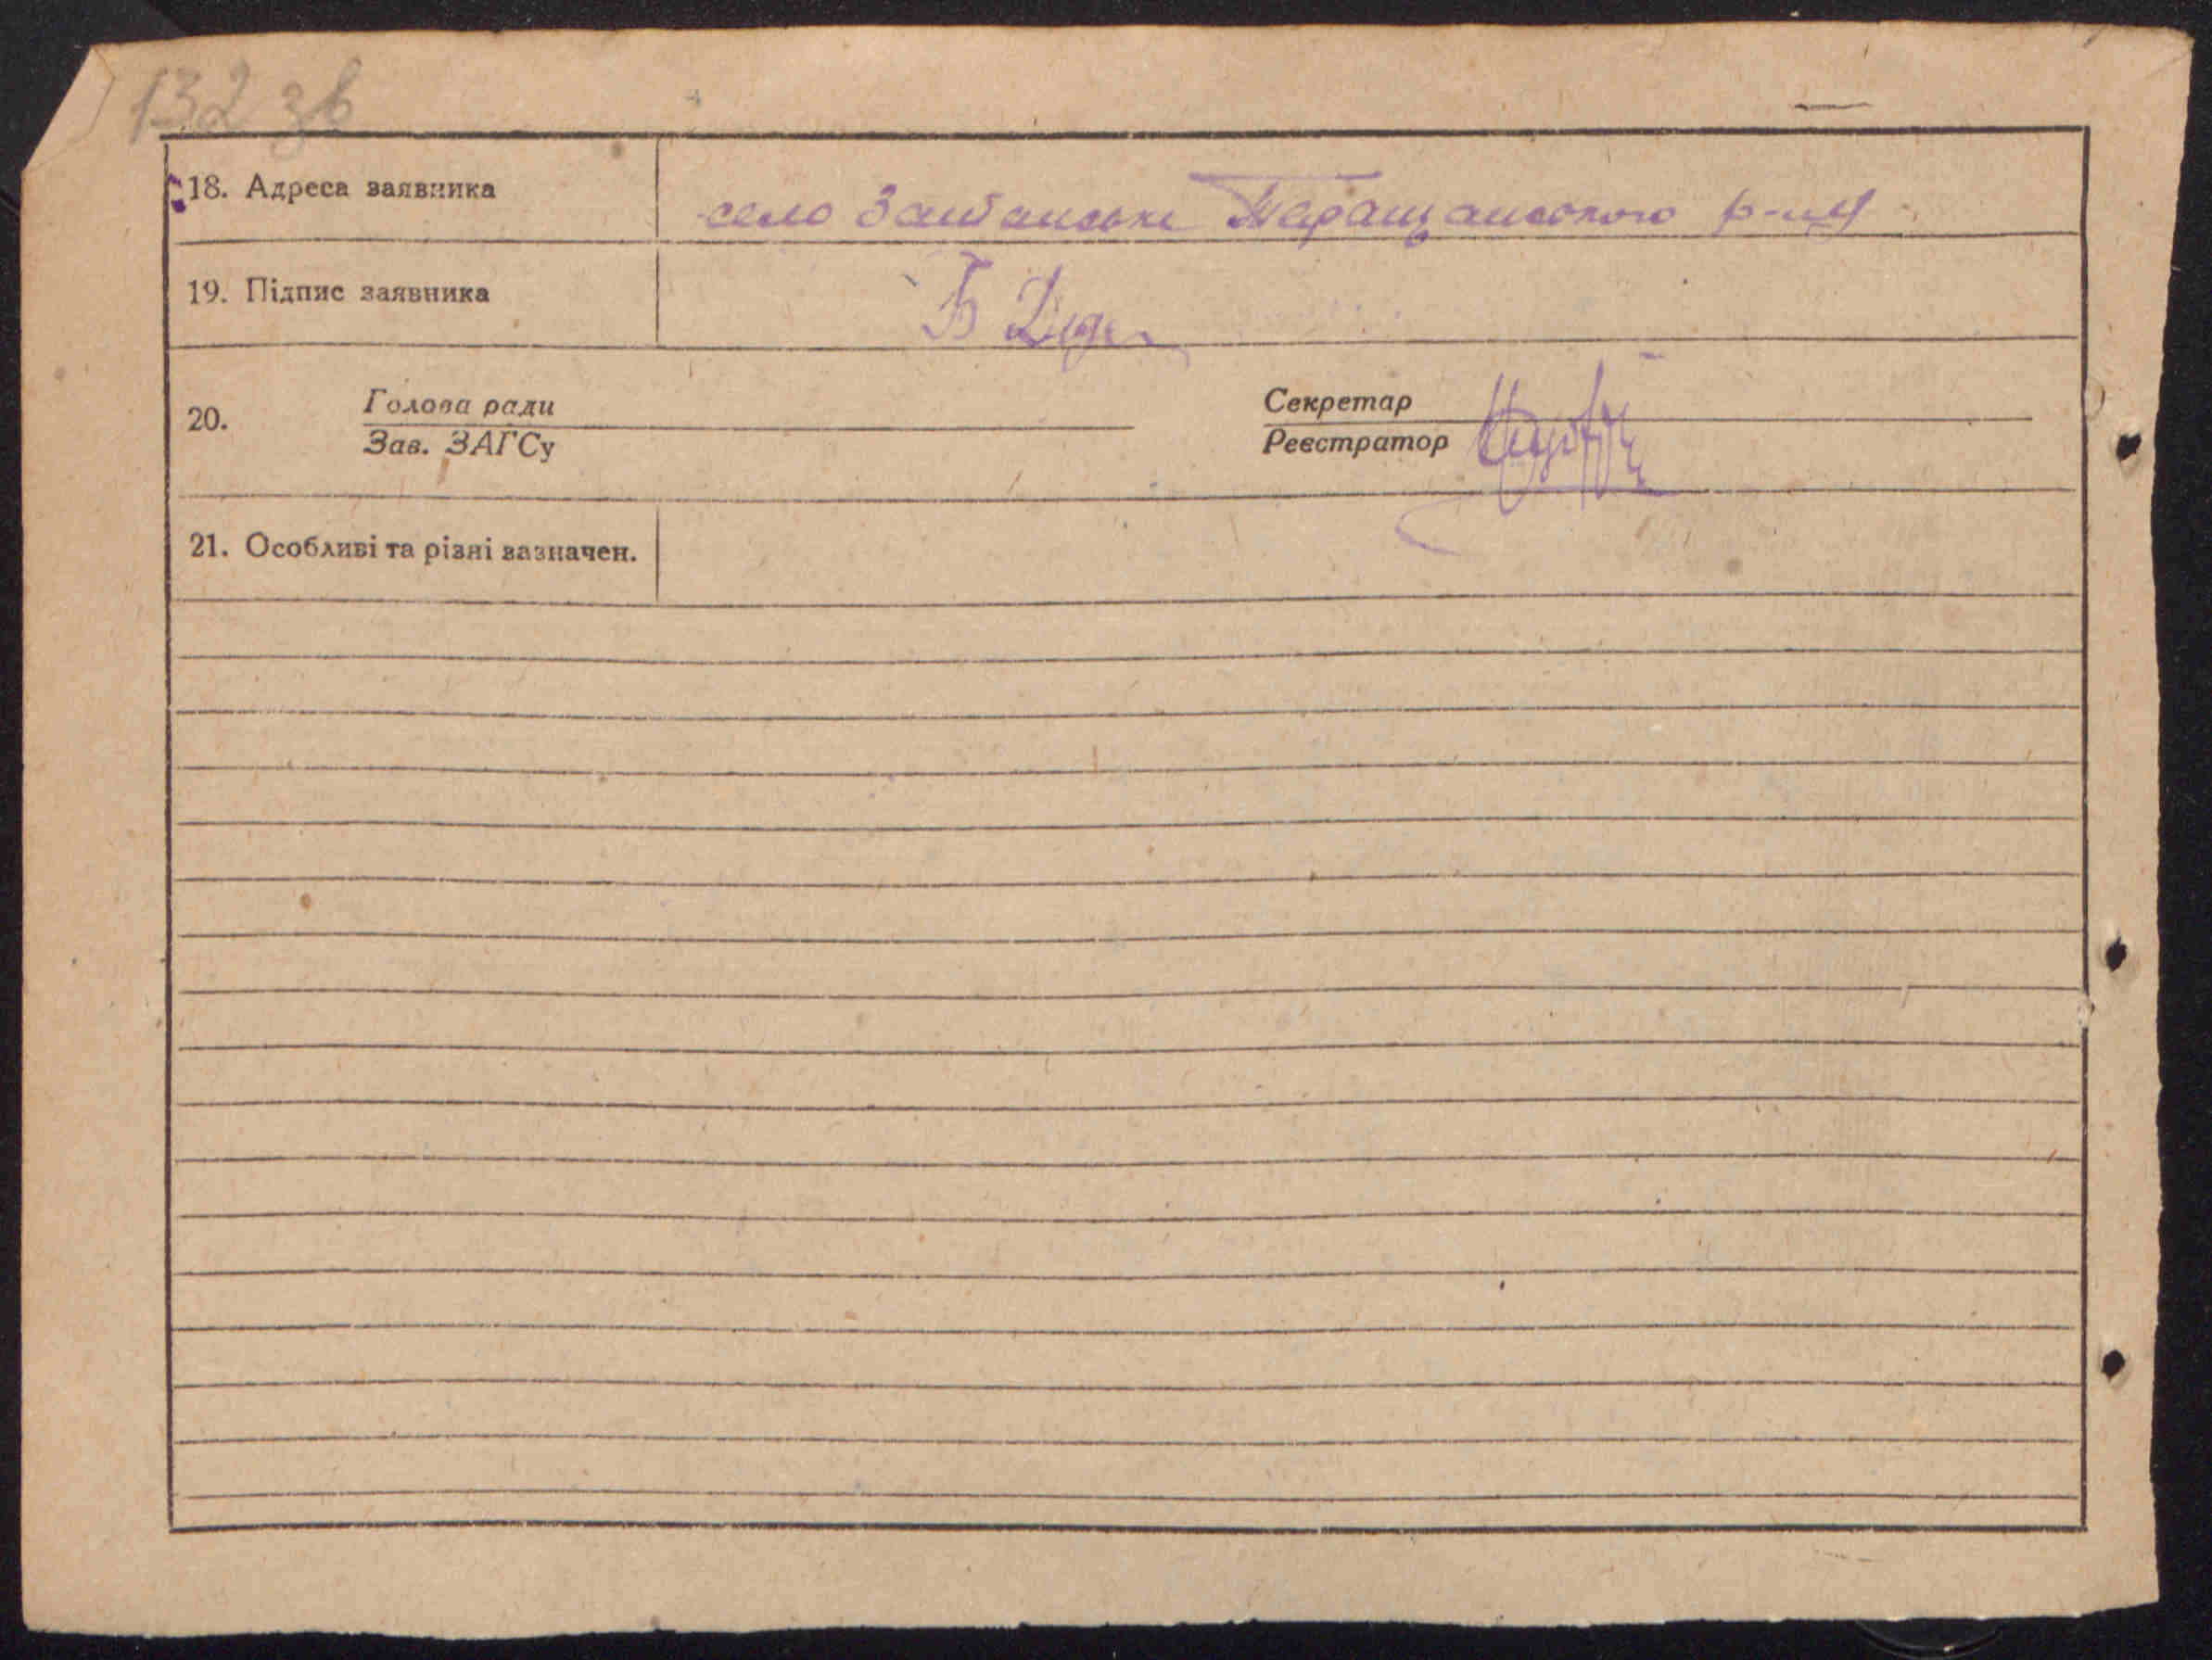 132 зв
18. Адреса заявника
село Таращанського р-ну
19. Підпис заявника
Б
20. Голова ради Секретар
Зав. ЗАГСу Реєстратор
21. Особливі та різні зазначен.